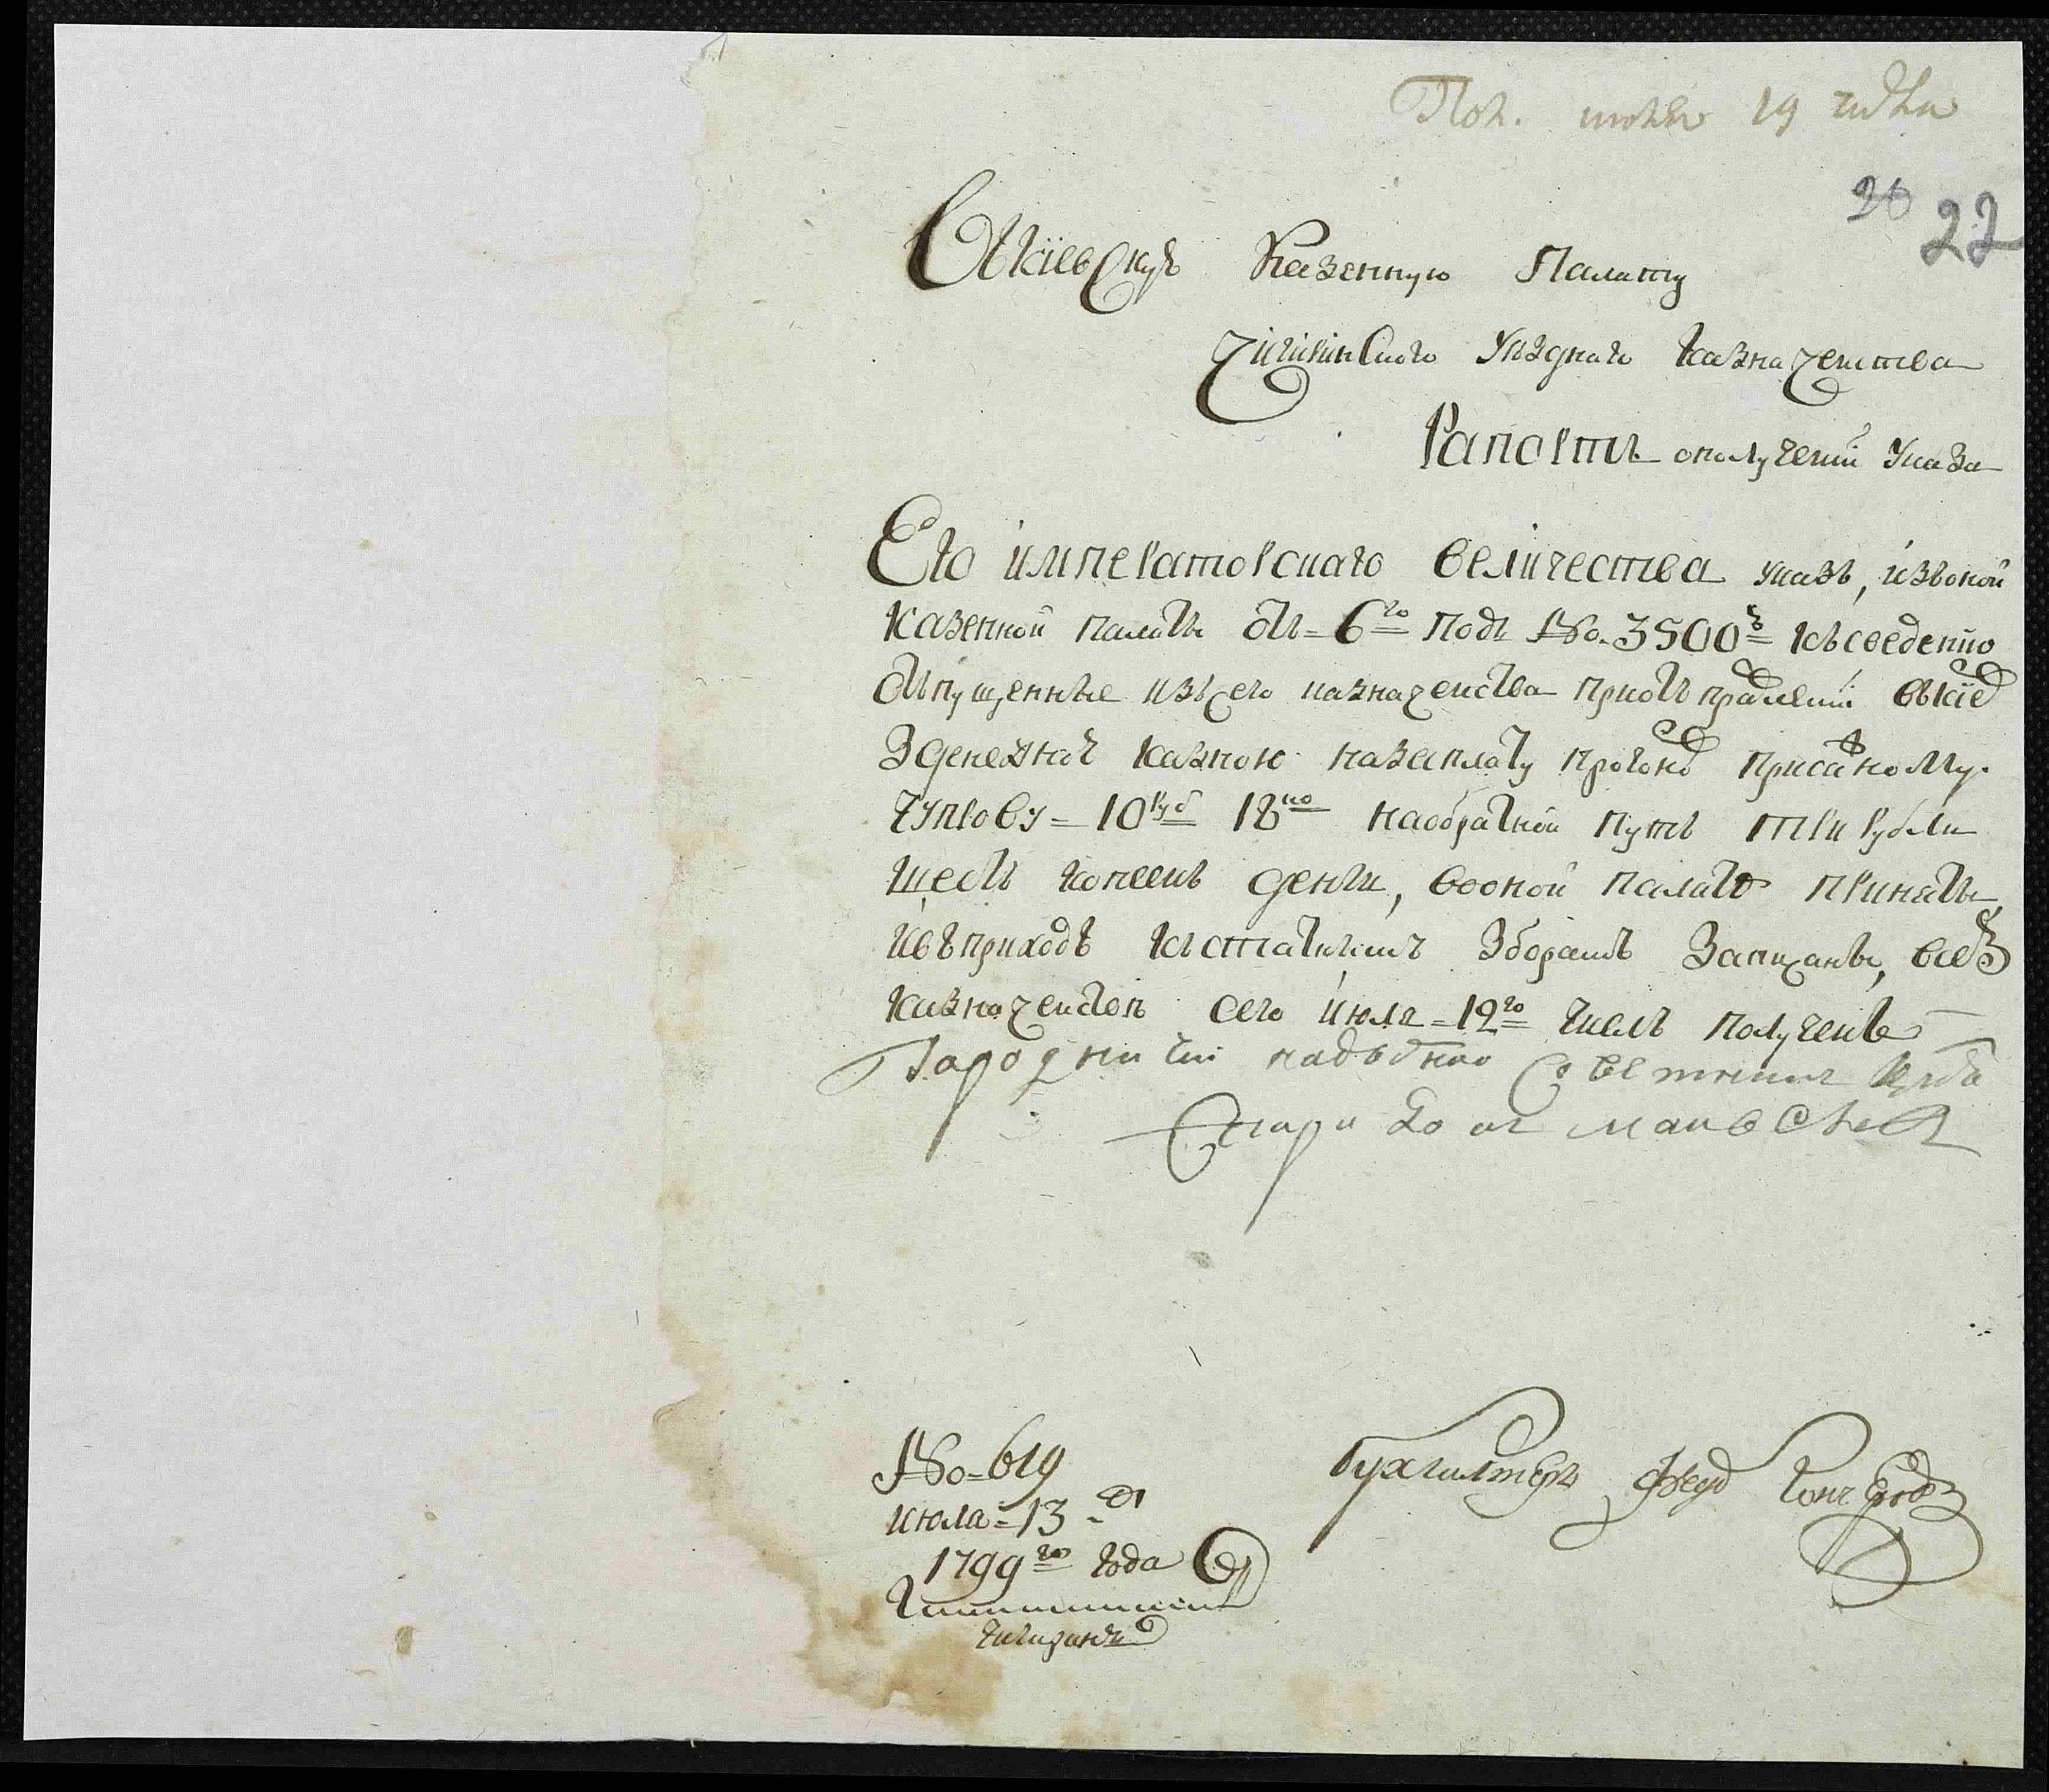 Пол. июля 19 числа
20 22
В киевскую Казенную Палату
чигиринского Уезднаго казначейства
Рапортъ о получении Указа
Его императорскаго величества указъ, изъ оной
казенной палаты отъ 6го подъ No. 3500м къ сведению
отпущенные изъ сего казначейства при отправлении въ киев
з денежною казною на заплату прогонов присяжному
чупрову 10руб 18ко на обратной путь три рубли
шесть копеекъ денги, во оной палате приняты,
и въ приходъ къ статнимъ зборамъ записаны, в сем
казначействе сего июля 12го числъ полученъ
Городничий надворной Советник
No 619
июля 13 д
1799го года
чигиринъ
бухгалтеръ федор